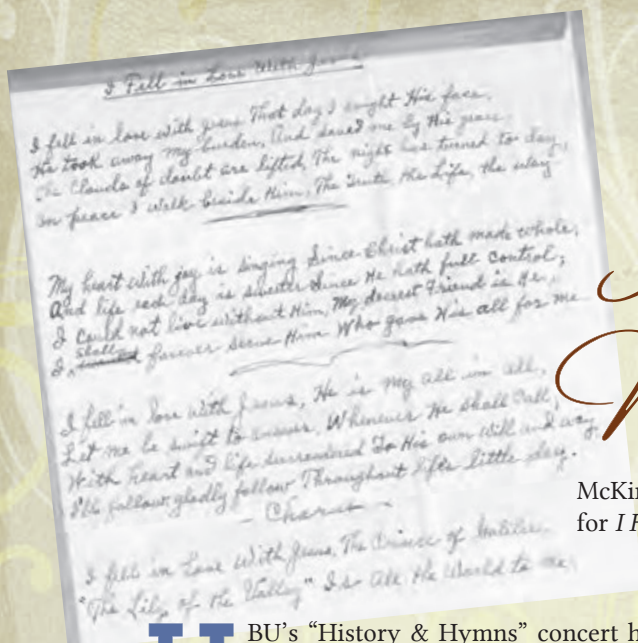 I Fell in Love With Jesus
I fell in love with Jesus That day I sought His face,
He took away my burden, And saved me by His grace
The Clouds of doubt are lifted, The night has turned to day,
In peace I walk beside Him, The Truth, the Life, the Way
My heart with joy is singing Since Christ hath made whole,
And life each day is sweeter Since He hath full control;
I could not live without Him, My dearest Friend is He,
I shall forever serve Him Who gave His all for me
I fell in love with Jesus, He is my all in all,
Let me be swift to answer, Whenever He shall call,
With heart and life surrendered To His own will and way,
I'll follow, gladly follow Throughout life's little day.
- Chorus -
I fell in Love With Jesus, The Prince of Galilee
"The Lily of the Valley" Is All the World to me,
McKin
for I F
BU's "History & Hymns" concert h